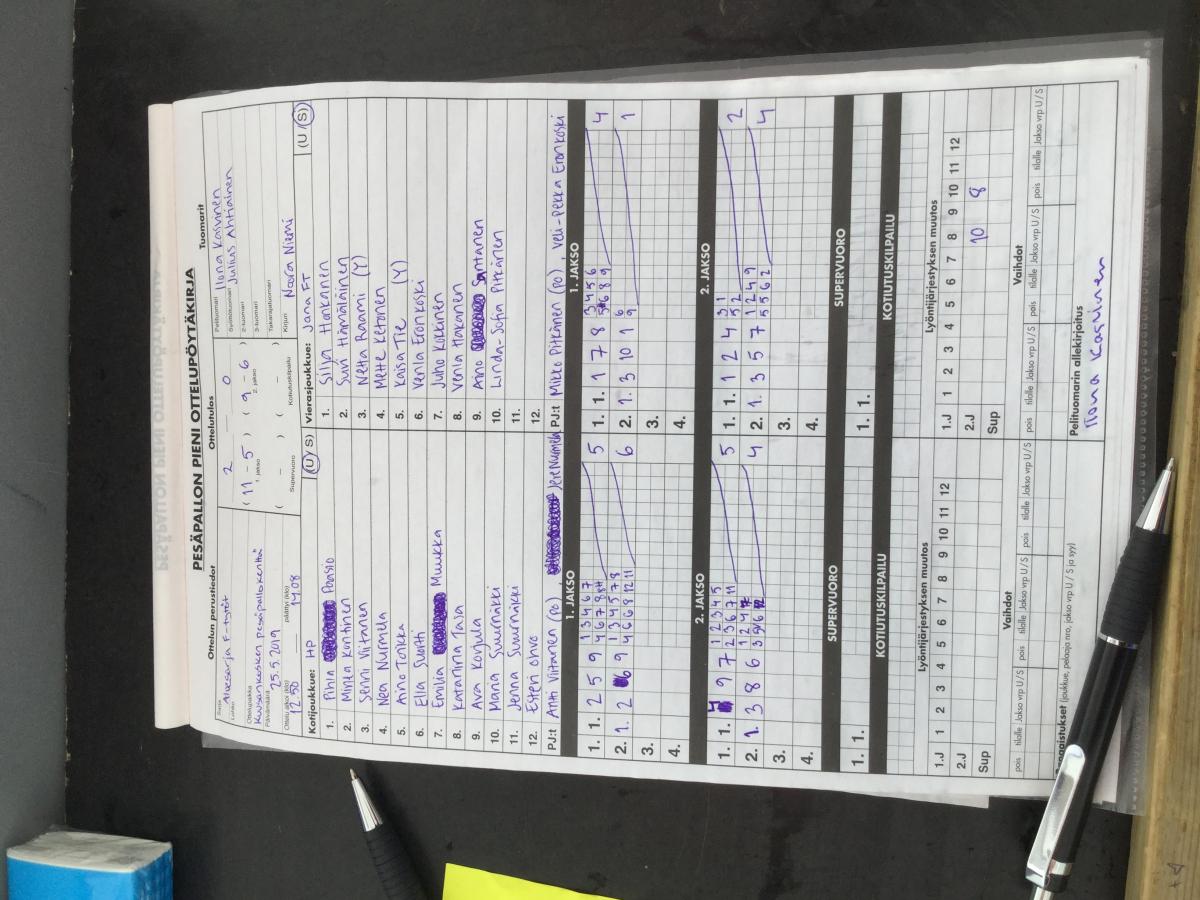 PESÄPALLON PIENI OTTELUPÖYTÄKIRJA
Ottelun perustiedot
Ottelutulos
Tuomarit
Sarja Aluesarja F-tytöt
Lohko
Ottelupaikka
Kuusankosken pesäpallokenttä
Päivämäärä 25.5.2019
Ottelu alkoi (klo) 1250 päättyi (klo) 14.08
2 0
(11 - 5) (9 - 6)
1. jakso 2. jakso
( - ) ( - )
Supervuoro Kotiutuskilpailu
Pelituomari Ilona Kasinen
Syöttötuomari Julius Ahtiainen
2-tuomari
3-tuomari
Takarajatuomari
Kirjuri Noora Niemi
Kotijoukkue: HP (U/S)
1. Pihla Paasio
2. Minea Kontinen
3. Senni Viitanen
4. Nea Nurmela
5. Aino Tonkka
6. Ella Suortti
7. Emilia Muukka
8. Katariina Taja
9. Ava Korjula
10. Maria Suurnäkki
11. Jenna Suurnäkki
12. Esteri Ohvo
PJ:t Antti Viitanen (PO) Jere Nurmela
Vierasjoukkue: Jana FT (U/S)
1. Silja Honkanen
2. Suvi Hämäläinen
3. Netta Raami (Y)
4. Mette Ketonen
5. Kaisa Tie (Y)
6. Venla Eronkoski
7. Juho Kokkinen
8. Venla Hakanen
9. Aino Santanen
10. Linda-Sofia Pitkänen
11.
12.
PJ:t Mikko Pitkänen (PO), Veli-Pekka Eronkoski
1. JAKSO
1. 1. 2 5 9 5
2. 1. 2 6 9 6
3.
4.
1. JAKSO
1. 1. 1 7 8 4
2. 1. 3 10 1 1
3.
4.
2. JAKSO
1. 1. 9 7 5
2. 1. 3 8 6 4
3.
4.
2. JAKSO
1. 1. 1 2 4 2
2. 1. 3 5 7 4
3.
4.
SUPERVUORO
1. 1.
SUPERVUORO
1. 1.
KOTIUTUSKILPAILU
KOTIUTUSKILPAILU
Lyöntijärjestyksen muutos
1.J 1 2 3 4 5 6 7 8 9 10 11 12
2.J
Sup
Lyöntijärjestyksen muutos
1.J 1 2 3 4 5 6 7 8 9 10 11 12
2.J 10 8
Sup
Vaihdot
pois tilalle Jakso vrp U/S pois tilalle Jakso vrp U/S pois tilalle Jakso vrp U/S
Vaihdot
pois tilalle Jakso vrp U/S pois tilalle Jakso vrp U/S pois tilalle Jakso vrp U/S
(joukkue, pelaaja nro, jakso vrp U / S ja syy)
Pelituomarin allekirjoitus
Ilona Kasinen